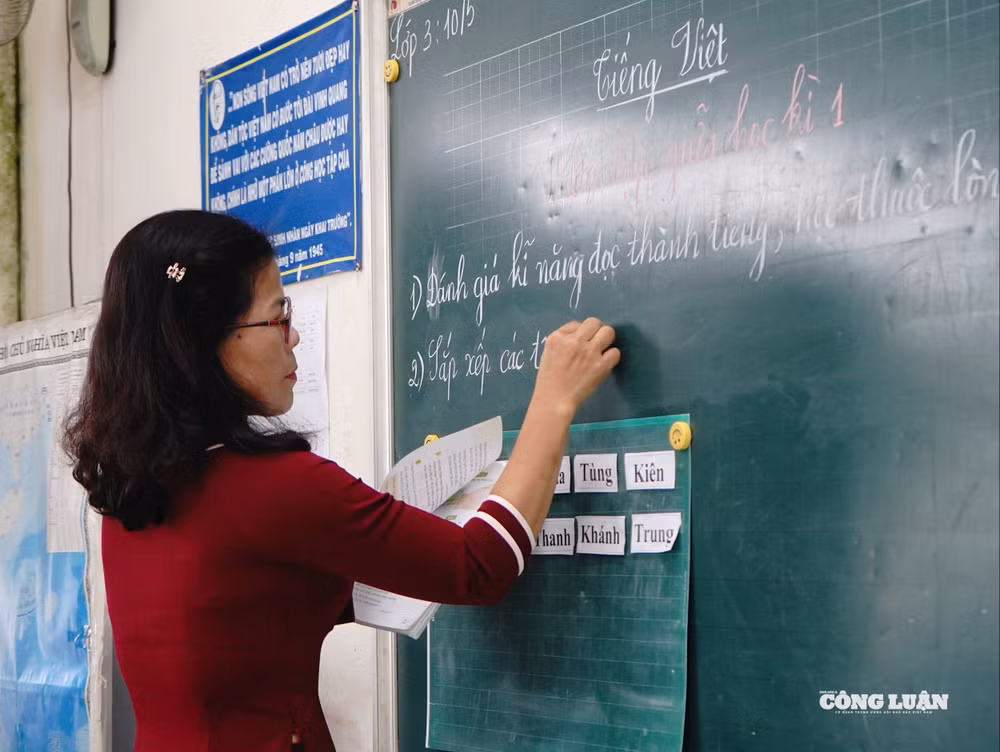 "...NON SÔNG VIỆT NAM CÓ TRỞ NÊN TƯƠI ĐẸP HAY
KHÔNG, DÂN TỘC VIỆT NAM CÓ BƯỚC TỚI ĐÀI VINH QUANG
ĐỂ SÁNH VAI VỚI CÁC CƯỜNG QUỐC NĂM CHÂU ĐƯỢC HAY
KHÔNG, CHÍNH LÀ NHỜ MỘT PHẦN LỚN Ở CÔNG HỌC TẬP CỦA
SINH NHÂN NGÀY KHAI TRƯỜNG".
9 năm 1945
CHỦ NGHĨA VIỆT NAM
Lớp 3: 10/5
Tiếng Việt
học kì 1
1) Đánh giá kĩ năng đọc thành tiếng, học thuộc lòn
2) Sắp xếp các t
Tùng Kiên
Thanh Khánh Trung
CÔNG LUẬN